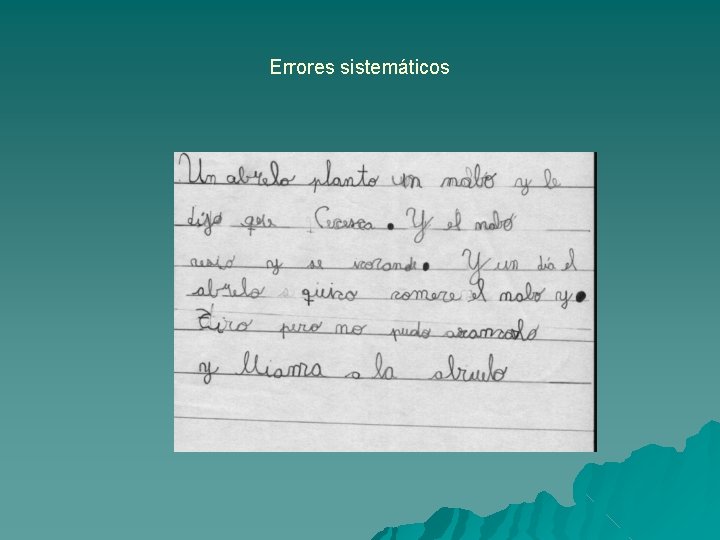 Errores sistemáticos
Un abrelo planto un nabo y le
dijo que Crcesca. Y el nabo
cresio y se izo rande. Y un día el
abrelo quiso comere el nabo y.
tiro pero no pudo aramcalo
y lliama a la abruelo